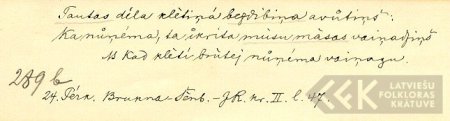 Tautas dēla klētiņā bezdibiņa avūtiņš:
Ka nūņēma, tā īkrita mūsu māsas vaiņadziņš
Kad klētī brūtej nūņēma vaiņagu.
289 b
24. Pērk. Brukna - Tēnb. - JK. nr. II. l. 47.
LATVIEŠU
FOLKLORAS
KRĀTUVE